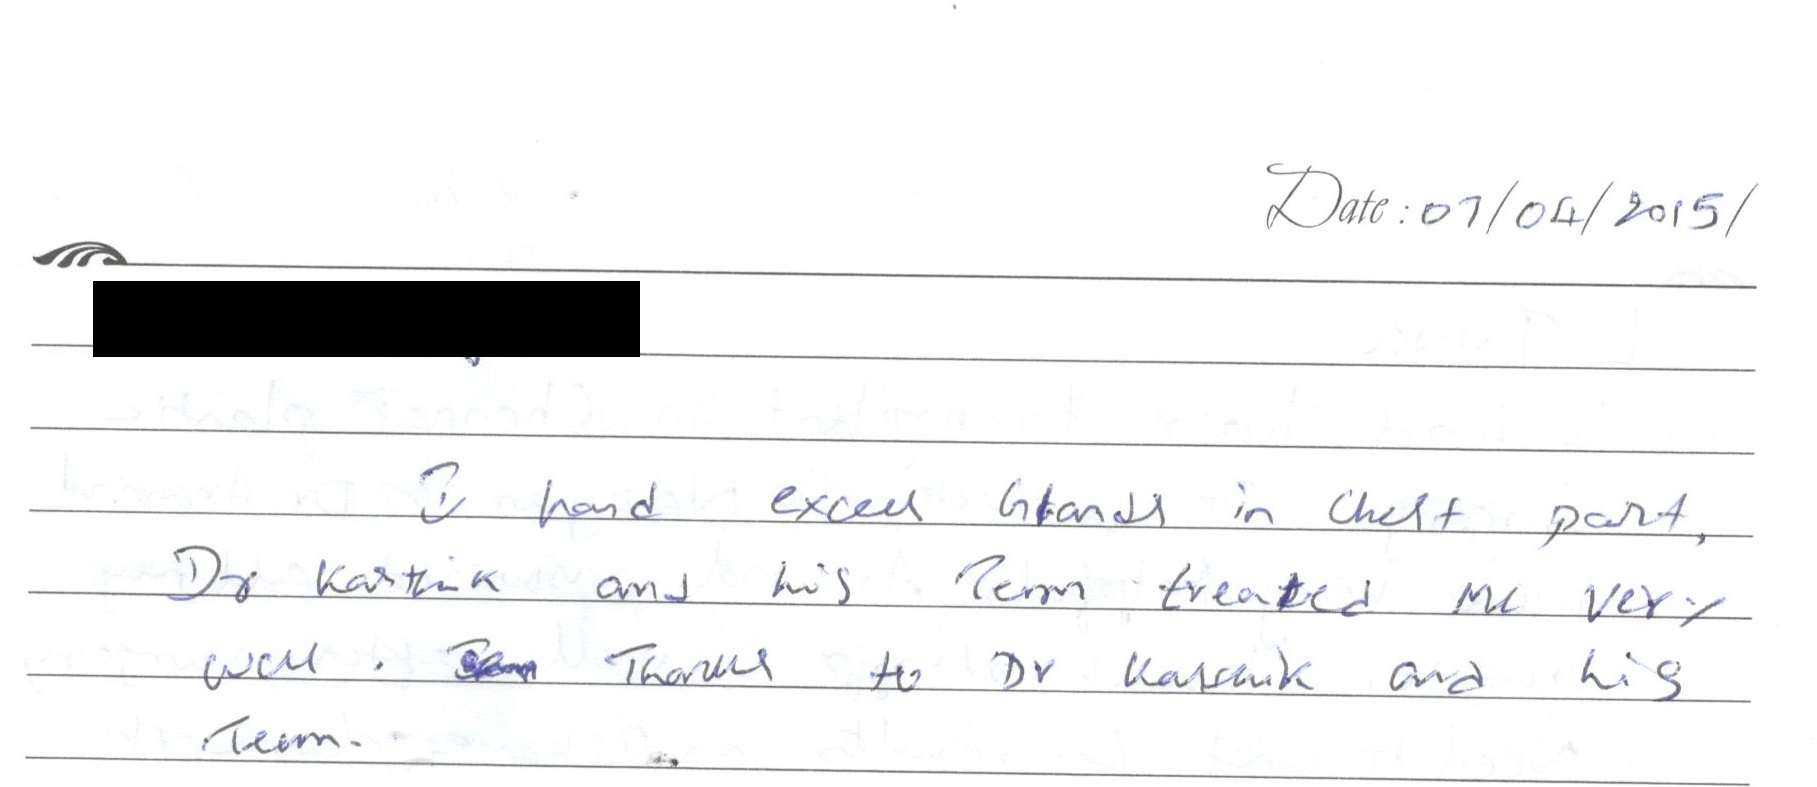 Date: 07/04/2015/
I hand excess Glands in Chest part,
Dr Karthik and his Team treated me very
well. Thanks to Dr Karthik and his
Team.